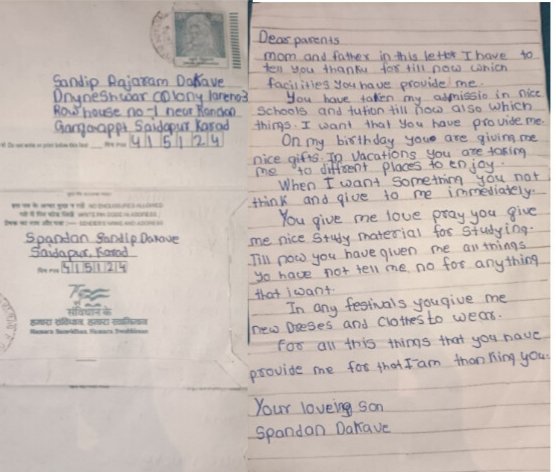 Sandip Rajaram Dakave
Dnyneshwar colony laneno3
Row house no-1 near Kandan
Gangaappt Saidapur Karad
415124
NO ENCLOSURES ALLOWED
Spandan Sandip Dakave
Saidapur, Karad
415124
75
संविधान के
हमारा संविधान, हमारा स्वाभिमान
Hamara Samvidhan, Hamara Swabhiman
Dear parents
mom and father in this letter I have to
tell you thanku for till now which
facilities You have provide me.
You have taken my admissio in nice
schools and tution till now also which
things. I want that You have provide me.
On my birthday youe are giving me
nice gifts. In vacations you are taking
me to diffrent places to enjoy.
When I want something you not
think and give to me immediately.
You give me love pray you give
me nice study material for studying.
Till now you have given me all things
Yo have not tell me no for anything
that i want.
In any festivals you give me
new Dreses and clothes to wear.
For all this things that you have
provide me for that I am thanking you.
Your loveing son
Spandan Dakave